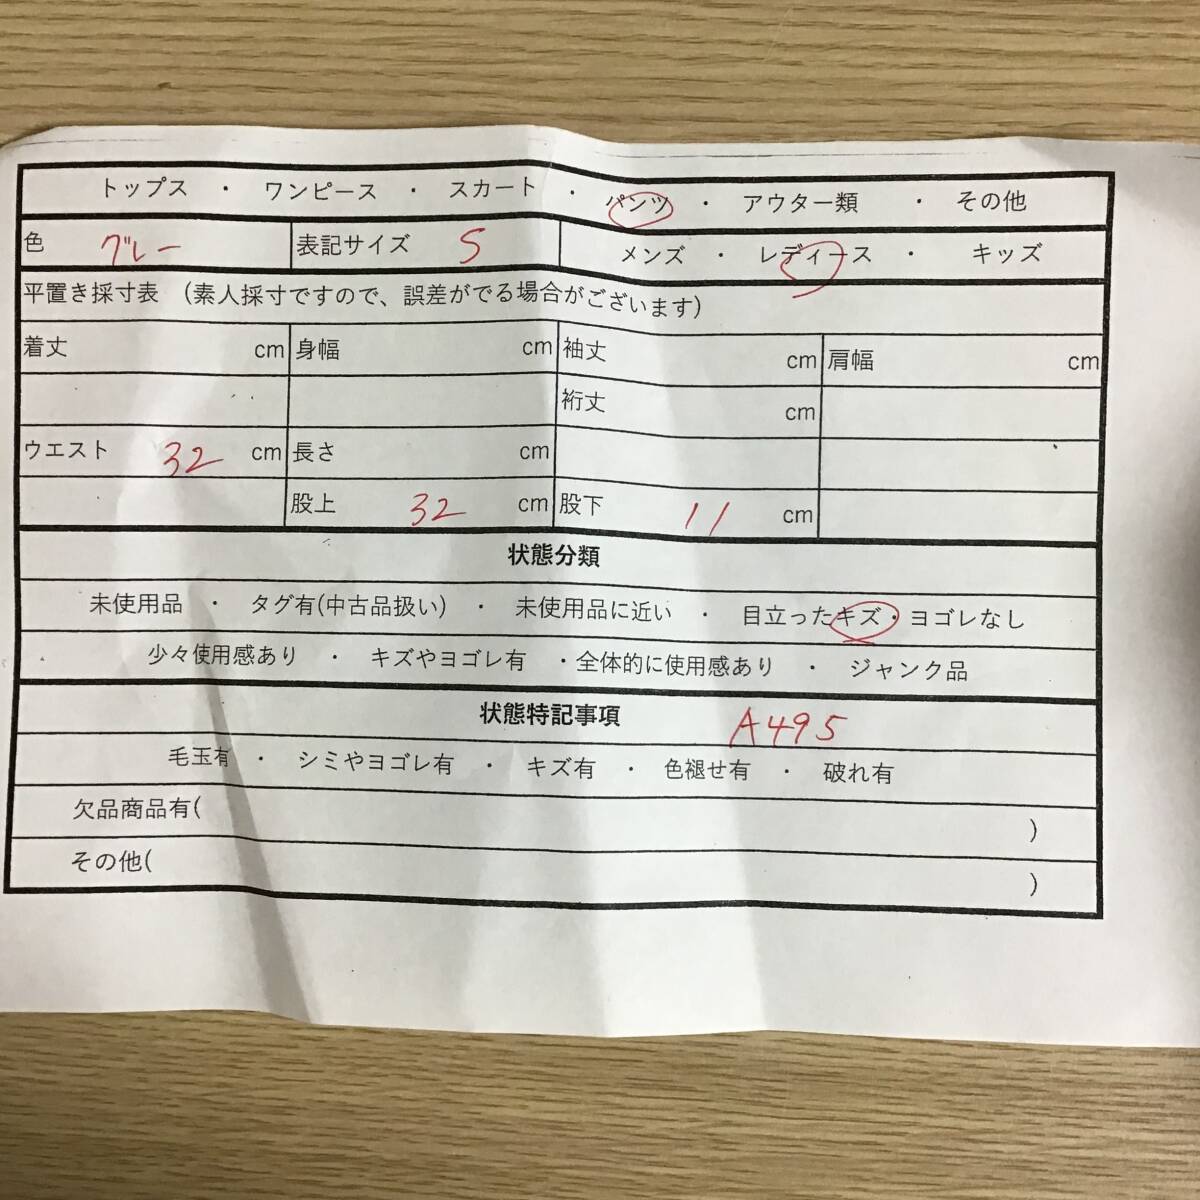 トップス ・ ワンピース ・ スカート ・ パンツ ・ アウター類 ・ その他
色 グレー 表記サイズ S メンズ ・ レディース ・ キッズ
平置き採寸表 (素人採寸ですので、誤差がでる場合がございます)
着丈 cm 身幅 cm 袖丈 cm 肩幅 cm
裄丈 cm
ウエスト 32 cm 長さ cm
股上 32 cm 股下 11 cm
状態分類
未使用品 ・ タグ有(中古品扱い) ・ 未使用品に近い ・ 目立ったキズ・ヨゴレなし
少々使用感あり ・ キズやヨゴレ有 ・全体的に使用感あり ・ ジャンク品
状態特記事項 A495
毛玉有 ・ シミやヨゴレ有 ・ キズ有 ・ 色褪せ有 ・ 破れ有
欠品商品有( )
その他( )